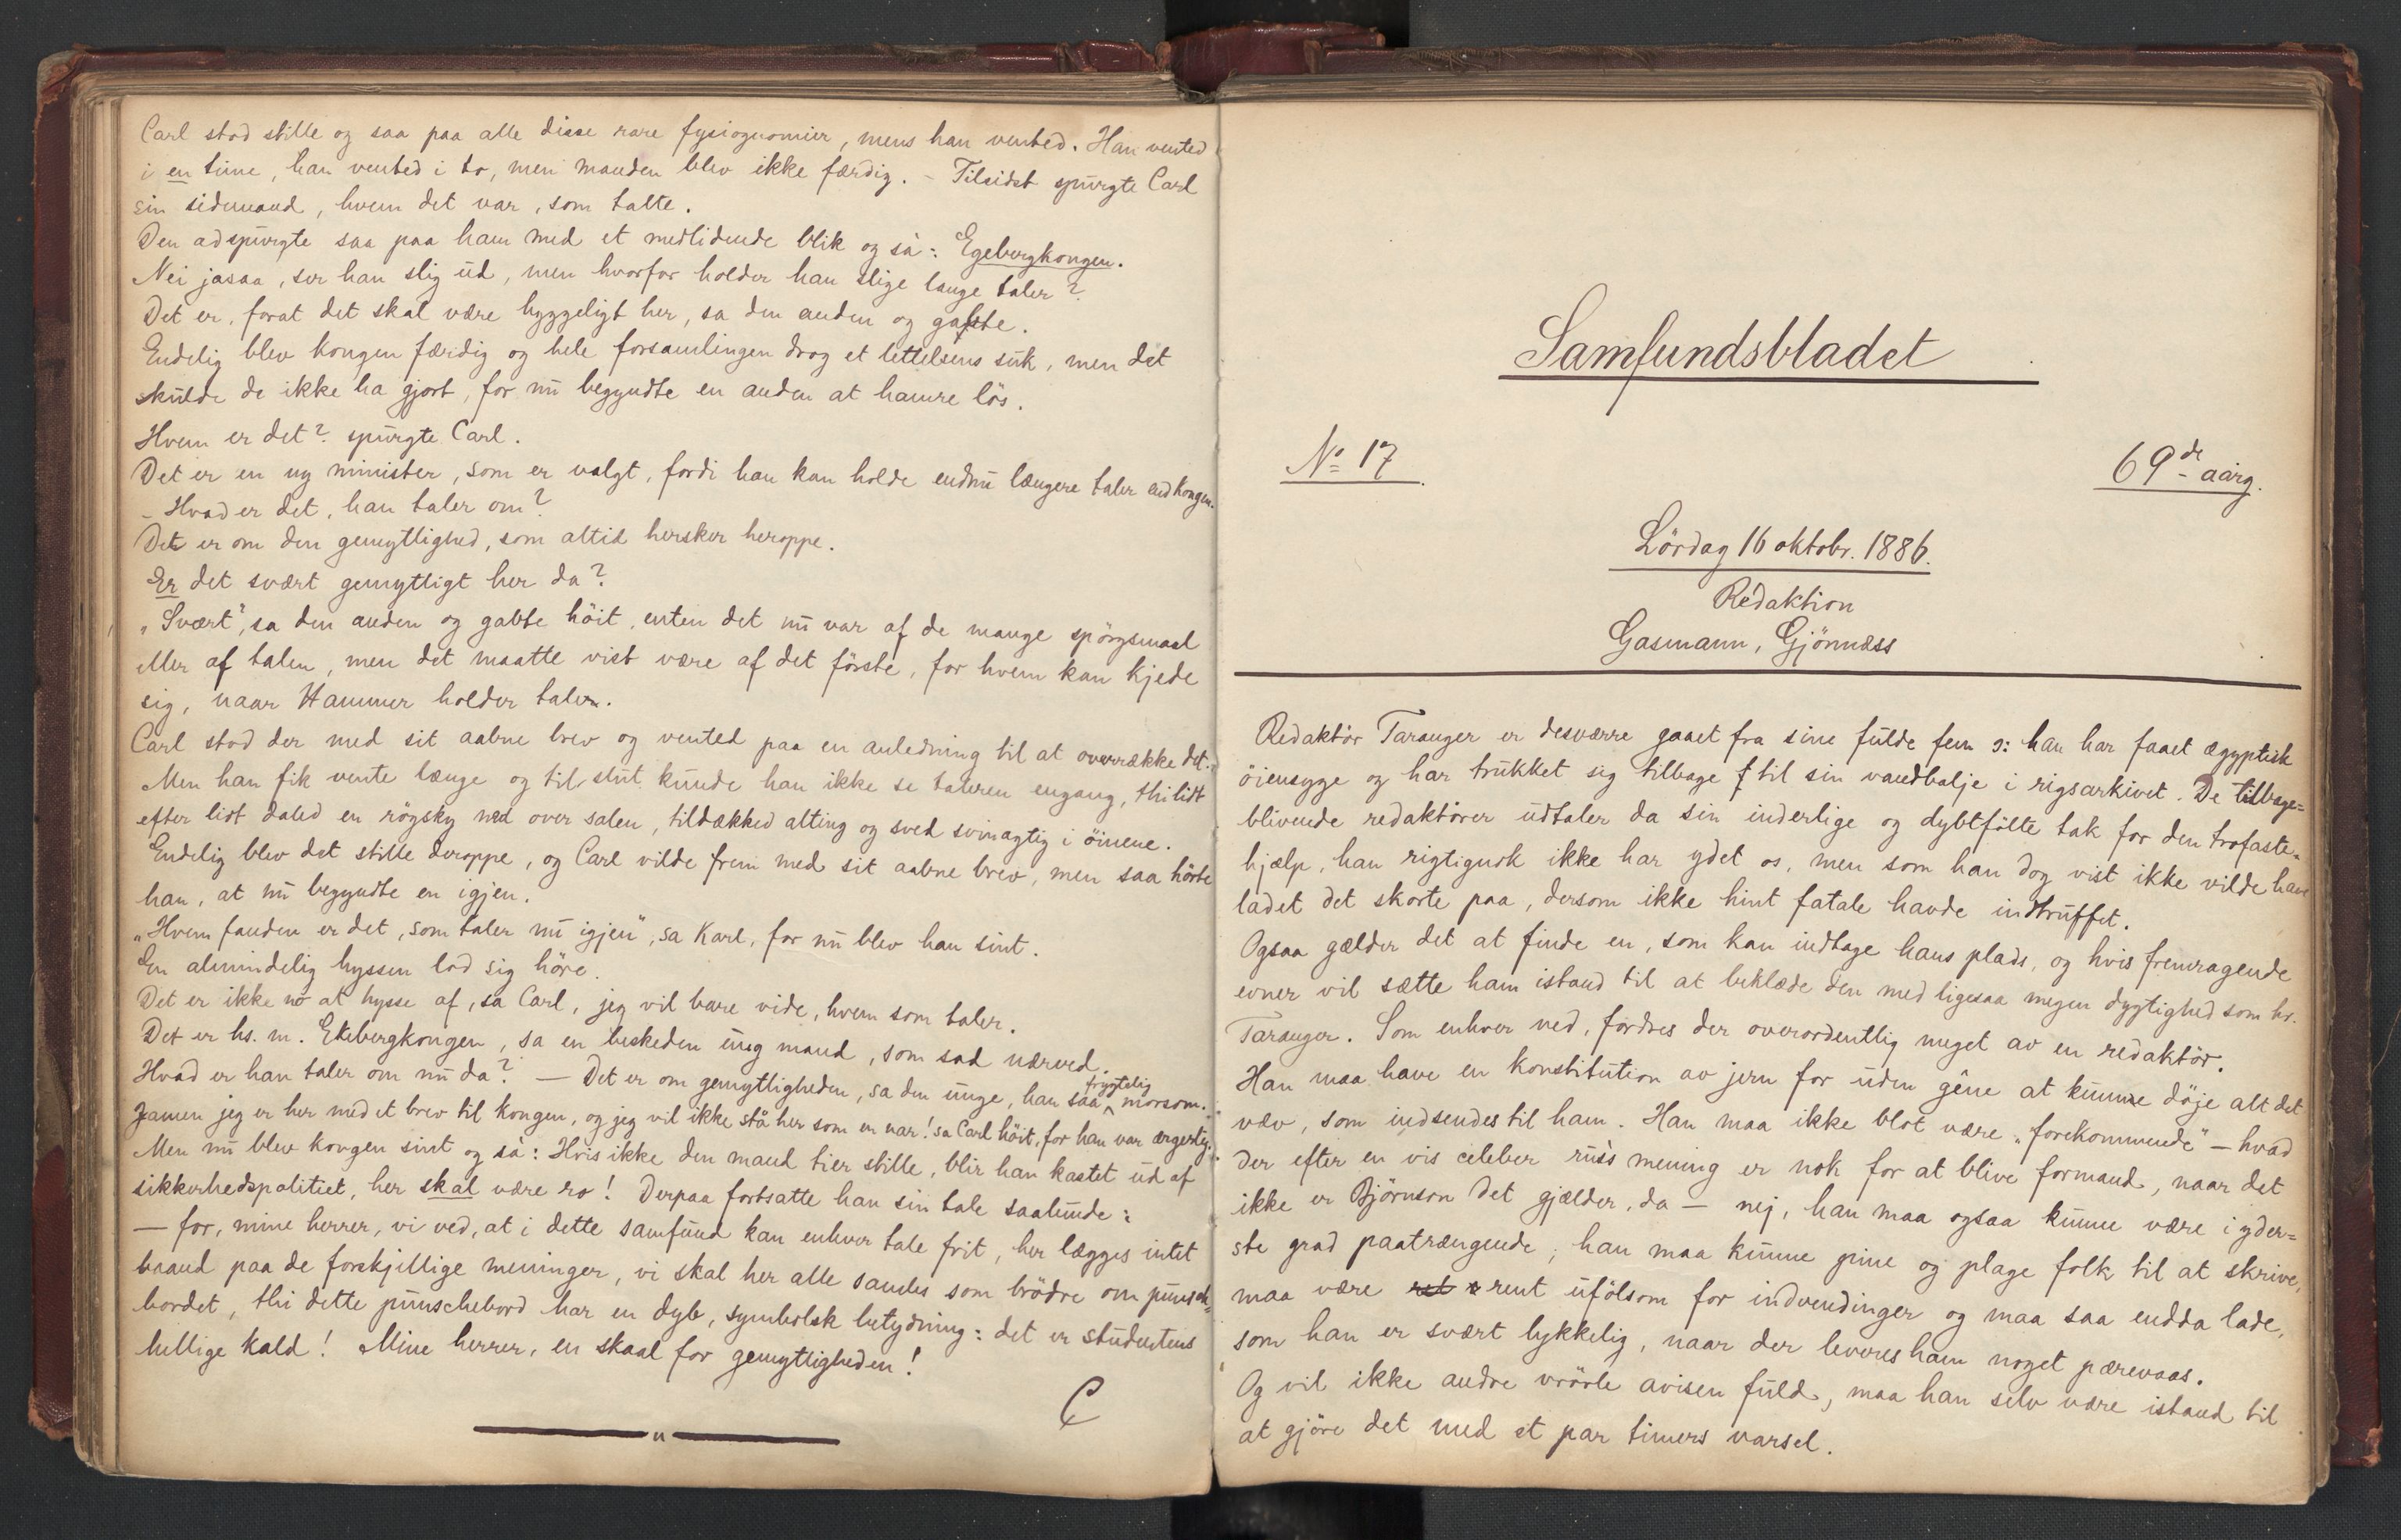 Carl stod stille og saa paa alle disse rare fysiognomier, mens han vented. Han vented
i en time, han vented i to, men manden blev ikke færdig. – Tilsidst spurgte Carl
sin sidemand, hvem det var, som talte.
Den adspurgte saa paa ham med et medlidende blik og sà: Egebergkongen.
Nei jasaa, ser han slig ud, men hvorfor holder han slige lange taler?
Det er, forat det skal være hyggeligt her, sa den anden og gabte.
Endelig blev kongen færdig og hele forsamlingen drog et lettelsens suk, men det
skulde de ikke ha gjort, for nu begyndte en anden at hamre lös.
Hvem er det? spurgte Carl.
Det er en ny minister, som er valgt, fordi han kan holde endnu længere taler end kongen.
– Hvad er det, han taler om?
Det er om den gemytlighed, som altid hersker heroppe.
Er det svært gemytligt her da?
„Svært", sa den anden og gabte höit, enten det nu var af de mange spörgsmaal
eller af talen, men det maatte vist være af det förste, for hvem kan kjede
sig, naar Hammer holder taler.
Carl stod der med sit aabne brev og vented paa en anledning til at overrække det.
Men han fik vente længe og til slut kunde han ikke se taleren engang, thi lidt
efter lidt daled en rögsky ned over salen, tildækked alting og sved svinagtig i öinene.
Endelig blev det stille deroppe, og Carl vilde frem med sit aabne brev, men saa hörte
han, at nu begyndte en igjen.
„Hvem fanden er det, som taler nu igjen", sa Karl, for nu blev han sint.
En almindelig hyssen lod sig höre.
Det er ikke no at hysse af, sa Carl, jeg vil bare vide, hvem som taler.
Det er hs. m. Ekebergkongen, sa en beskeden ung mand, som sad nærved.
Hvad er han taler om nu da? — Det er om gemytligheden, sa den unge, han saa frygtelig morsom.
Jamen jeg er her med et brev til kongen, og jeg vil ikke stå her som en nar! sa Carl höit, for han var ærgerlig.
Men nu blev kongen sint og sà: Hvis ikke den mand tier stille, blir han kastet ud af
sikkerhedspolitiet, her skal være ro! Derpaa fortsatte han sin tale saalunde:
— for, mine herrer, vi ved, at i dette samfund kan enhver tale frit, her lægges intet
baand paa de forskjellige meninger, vi skal her alle samles som brödre om punsch-
bordet, thi dette punschebord har en dyb, symbolsk betydning: det er studentens
hellige kald! Mine herrer, en skaal for gemytligheden!
C
Samfundsbladet
No 17
69de aarg.
Lördag 16 oktobr. 1886.
Redaktion
Gasmann, Gjönnæss
Redaktör Taranger er desværre gaaet fra sine fulde fem ɔ: han har faaet ægyptisk
öiensyge og har trukket sig tilbage til sin vandbalje i rigsarkivet. De tilbage=
blivende redaktörer udtaler da sin inderlige og dybtfölte tak for den trofaste
hjælp, han rigtignok ikke har ydet os, men som han dog vist ikke vilde have
ladet det skorte paa, dersom ikke hint fatale havde indtruffet.
Ogsaa gælder det at finde en, som kan indtage hans plads, og hvis fremragende
evner vil sætte ham istand til at beklæde den med ligesaa megen dygtighed som hr.
Taranger. Som enhver ved, fordres der overordentlig meget av en redaktör.
Han maa have en konstitution av jern for uden gêne at kunne döje alt det
væv, som indsendes til ham. Han maa ikke blot være „forekommende" – hvad
der efter en vis celeber rus's mening er nok for at blive formand, naar det
ikke er Björnson det gjælder, da – nej, han maa ogsaa kunne være i yder=
ste grad paatrængende; han maa kunne pine og plage folk til at skrive,
maa være ret rent ufölsom for indvendinger og maa saa endda lade,
som han er svært lykkelig, naar der leveres ham noget pærevaas.
Og vil ikke andre vrövle avisen fuld, maa han selv være istand til
at gjöre det med et par timers varsel.